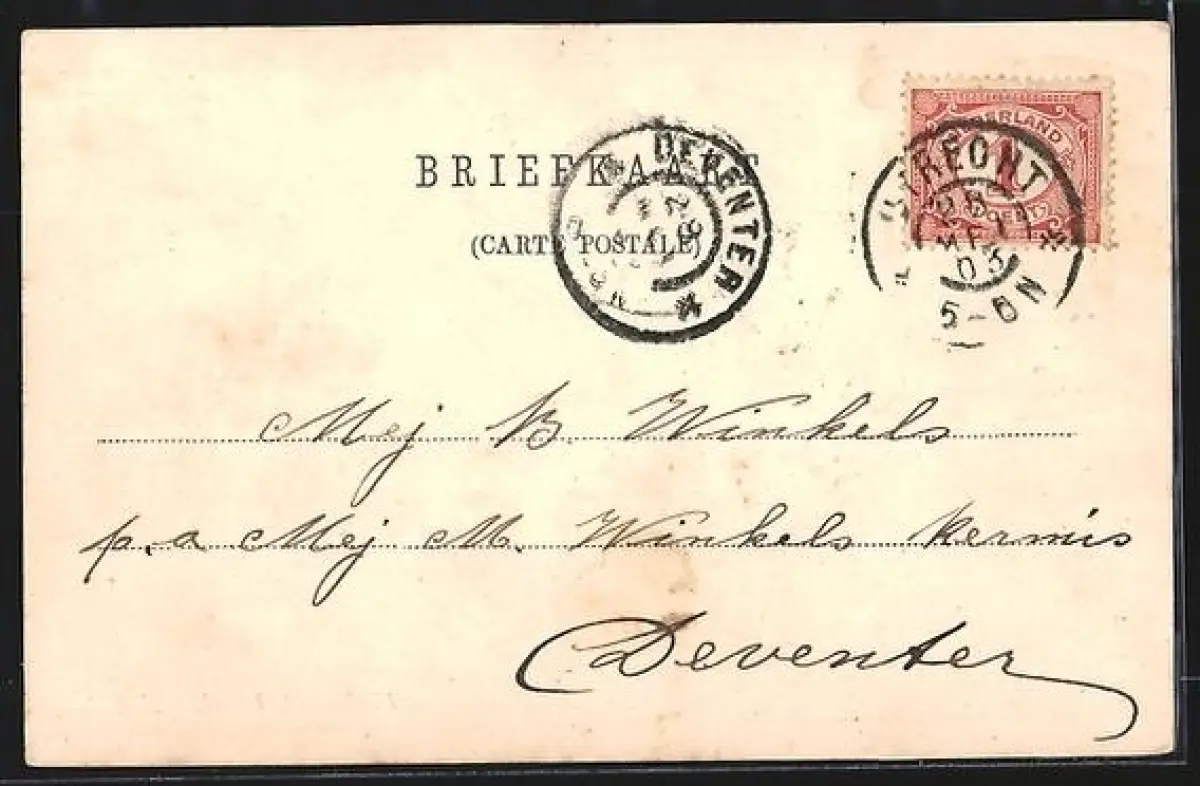 BRIEFKAART
(CARTE POSTALE)
DEVENTER
NEDERLAND
1
CENT
5-6N
03
Mej B. Winkels
p.a Mej M. Winkels kermis
Deventer